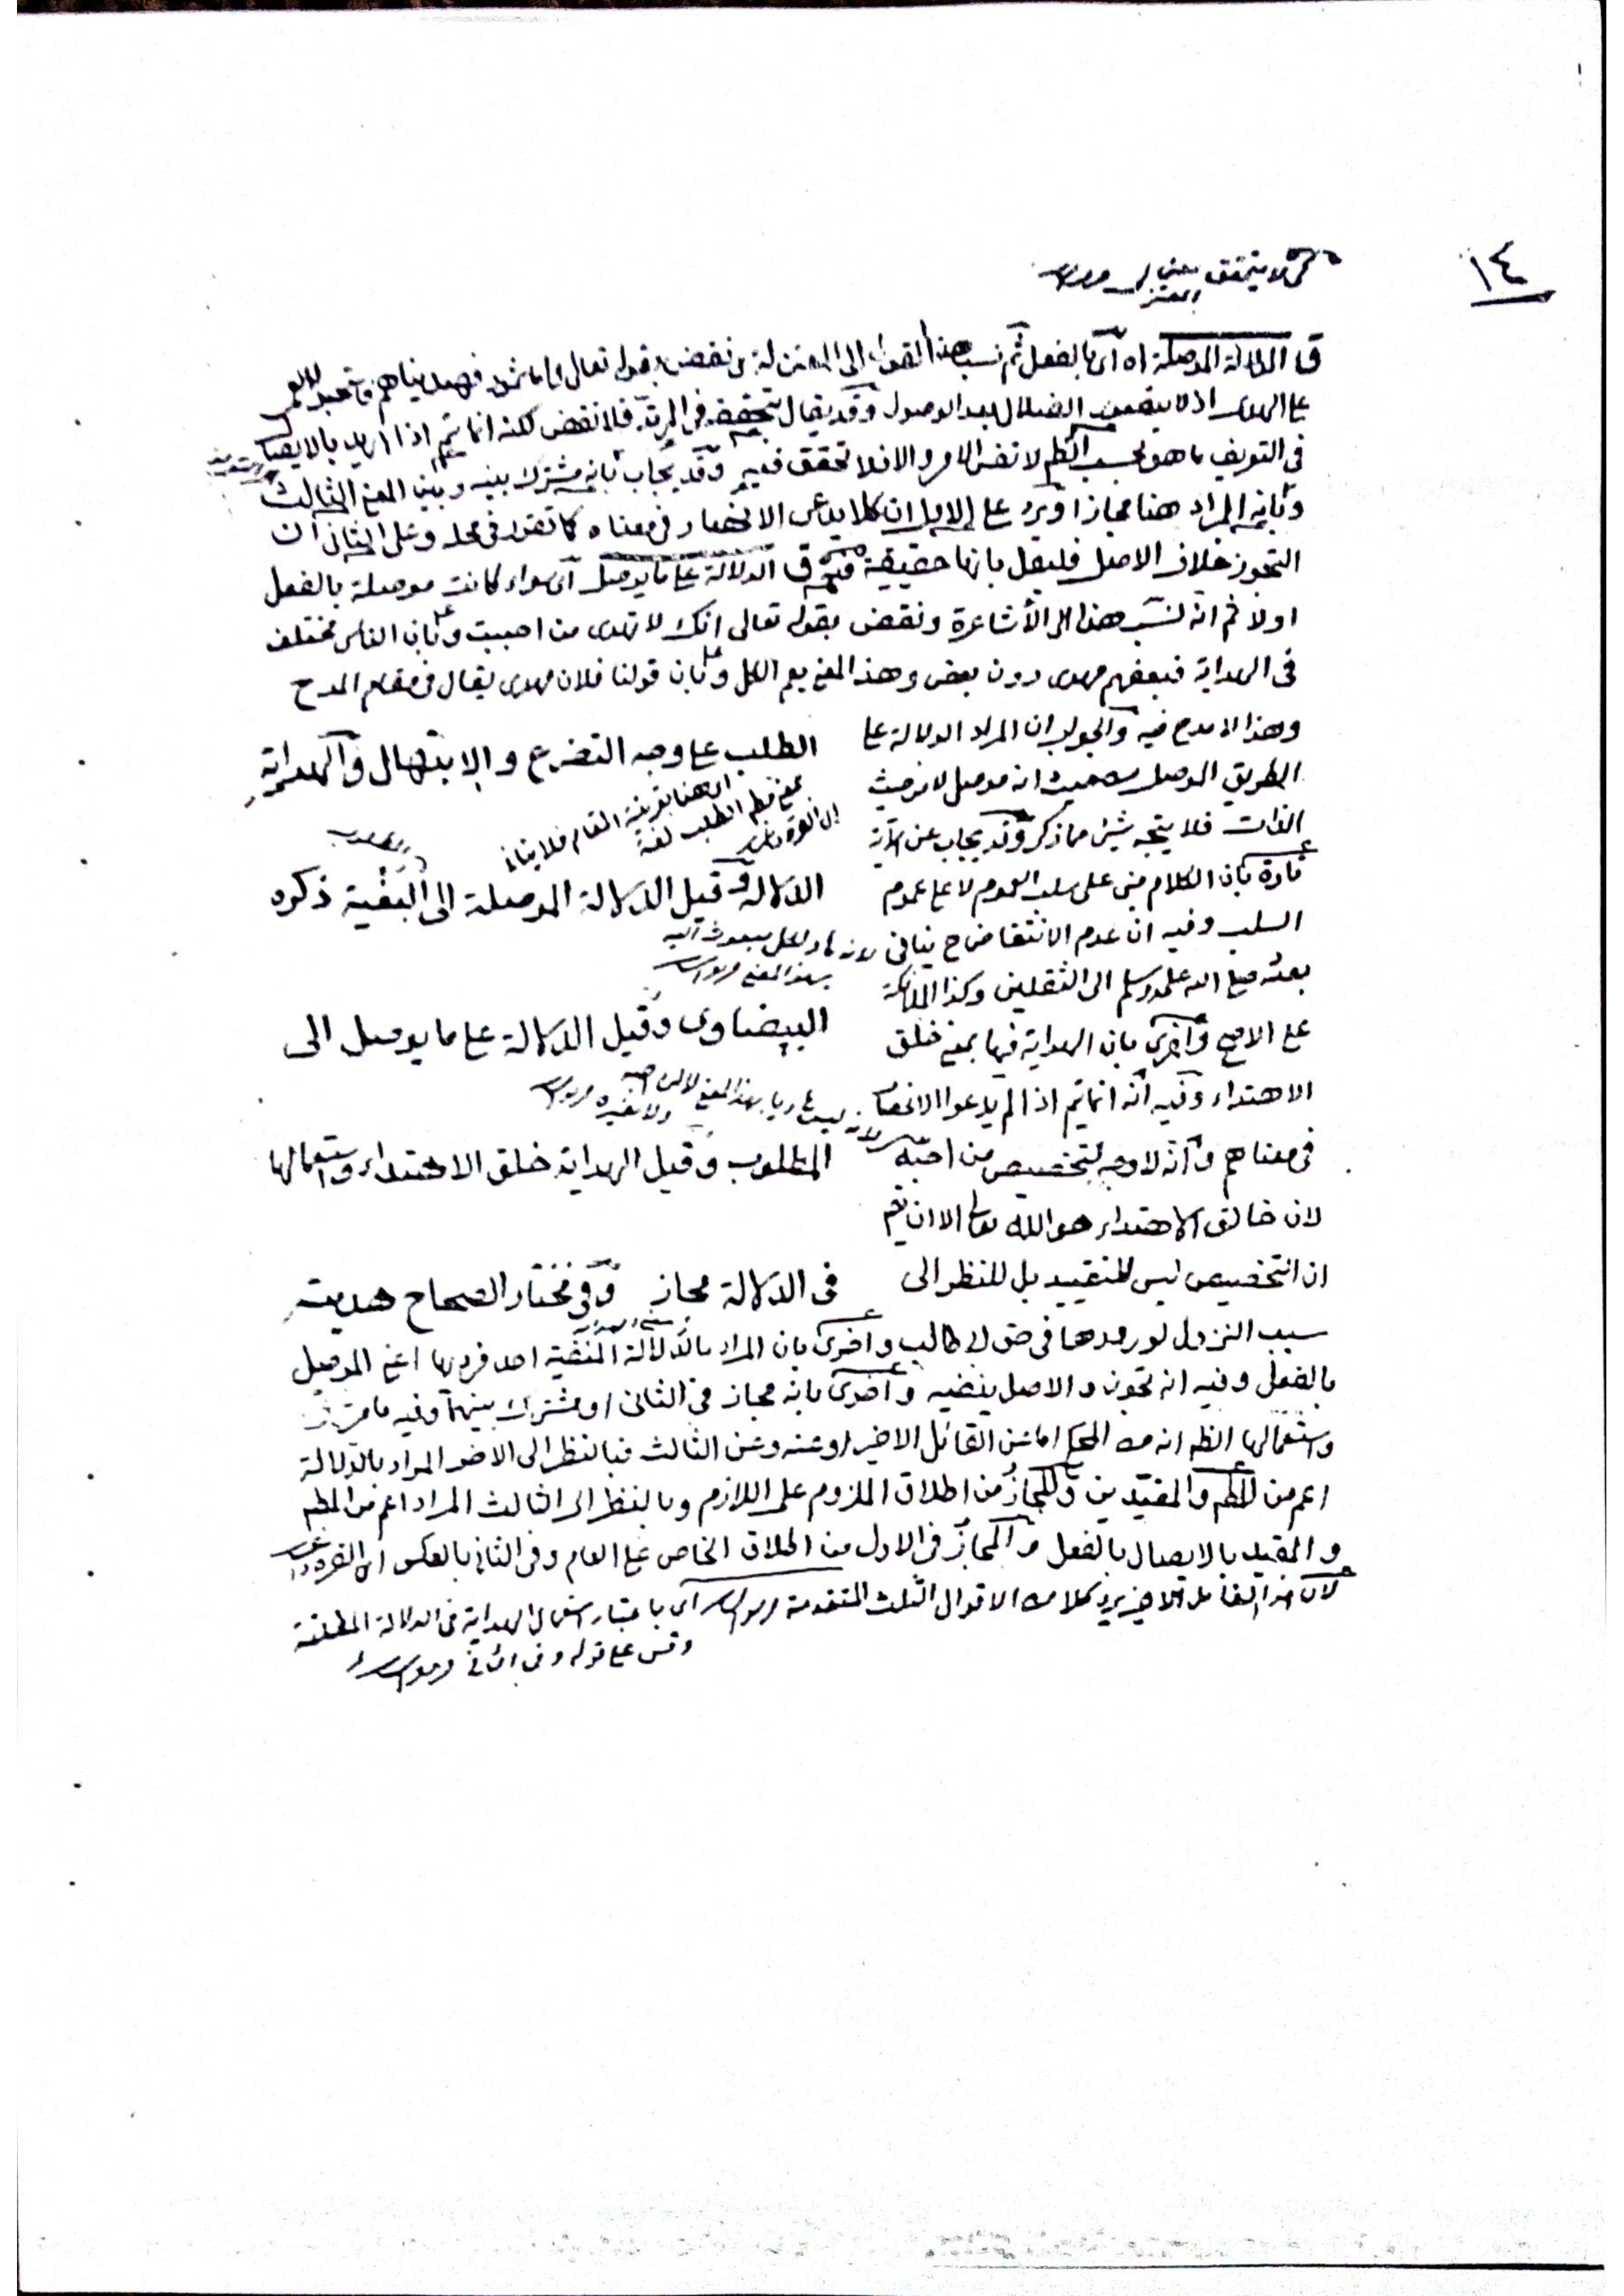 ١٤
لا يتحقق
ق الدلالة الموصلة اه اى بالفعل ثم نسب هذا القول الى المعتزلة ونقض بقوله تعالى واما ثمود فهديناهم فاستحبوا العمى
على الهدى اذ لا يتصور الضلال بعد الوصول وقد يقال بتحققه فى المرتد فلا نقض لكنه انما يتم اذا اريد بالايصال
فى التعريف ما هو بحسب الظم لا نفس الامر والا فلا تحقق فيه وقد يجاب بانه مشترك بينه وبين المعنى الثالث
وبانه المراد هنا مجازا ويرد على الاول ان كلا يدعى الانحصار فى معناه كما تقرر فى محله وعلى الثانى ان
التجوز خلاف الاصل فليقل بانها حقيقة ق الدلالة على ما يوصل اى سواء كانت موصلة بالفعل
اولا ثم انه نسب هذا الى الأشاعرة ونقض بقوله تعالى انك لا تهدى من احببت وبان الناس مختلف
فى الهداية فبعضهم مهدى دون بعض وهذا المعنى يعم الكل وبان قولنا فلان مهدى يقال فى مقام المدح
وهذا لا مدح فيه والجواب ان المراد الدلالة على
الطريق الموصل من حيث انه موصل لا من حيث
الذات فلا يتجه شئ مما ذكر وقد يجاب عن الآية
تارة بان الكلام مبنى على سلب العموم لا على عموم
السلب وفيه ان عدم الانتقاض ح ينافى
بعثه صلى الله عليه وسلم الى الثقلين وكذا الملائكة
على الاصح واخرى بان الهداية فيها بمعنى خلق
الاهتداء وفيه انه انما يتم اذا لم يدعوا الانحصار
فى معناهم وانه لا وجه لتخصيص من احبه
لان خالق الاهتداء هو الله تعالى الا ان يقم
ان التخصيص ليس للتقييد بل للنظر الى
الطلب على وجه التضرع والابتهال والهداية
اى هنا بقرينة المقام فلا ينافى
بمعنى مطم الطلب لغة
الدلالة وقيل الدلالة الموصلة الى البغية ذكره
لانه هاد لكل مبعوث اليه
بهذا المعنى
البيضاوى وقيل الدلالة على ما يوصل الى
لانه ليس هاديا بهذا المعنى لا لمن احبه
ولا لغيره
المطلوب وقيل الهداية خلق الاهتداء واستعمالها
فى الدلالة مجاز وفى مختار الصحاح هديته
سبب النزول لورودها فى حق ابى طالب واخرى بان المراد بالدلالة المنفية احد فرديها اعنى الموصل
بالفعل وفيه انه تجوز والاصل ينفيه واخرى بانه مجاز فى الثانى او مشترك بينهما وفيه ما مر
واستعمالها الظم انه من المحكى اما عن القائل الاخير او عنه وعن الثالث فبالنظر الى الاخير المراد بالدلالة
اعم من المطم والمقيدين والمجاز من اطلاق الملزوم على اللازم وبالنظر الى الثالث المراد اعم من المطم
والمقيد بالايصال بالفعل والمجاز فى الاول من اطلاق الخاص على العام وفى الثانى بالعكس
لان هذا القائل الاخير يرد كلا من الاقوال الثلث المتقدمة اى باعتبار استعمال الهداية فى الدلالة المطلقة
وقس على قوله وفى الثانى